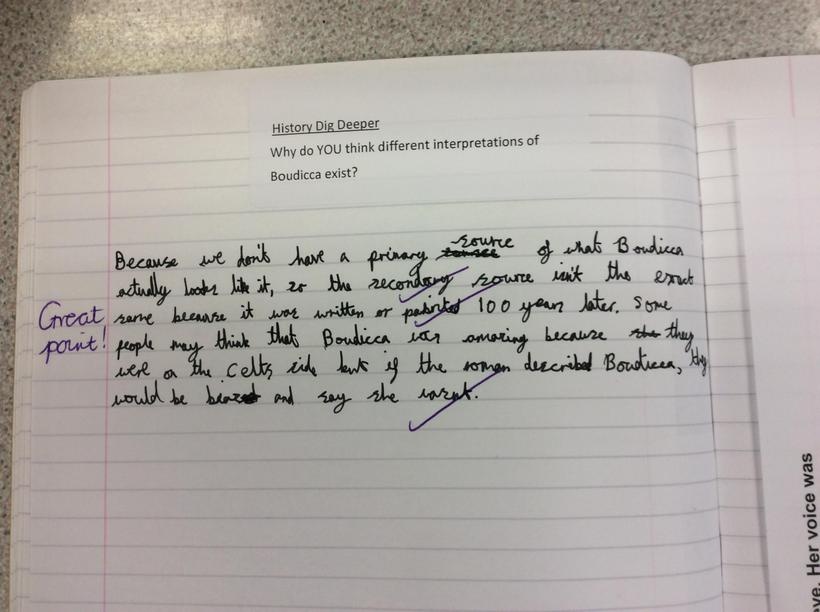 History Dig Deeper
Why do YOU think different interpretations of
Boudicca exist?
source
Because we don't have a primary of what Boudicca
actually looks like it, so the secondary source isn't the exact
same because it was written or painted 100 years later. Some
people may think that Boudicca was amazing because she they
were on the Celts side but if the roman described Boudicca, they
would be biased and say she wasn't.
Great
point!
ove. Her voice was